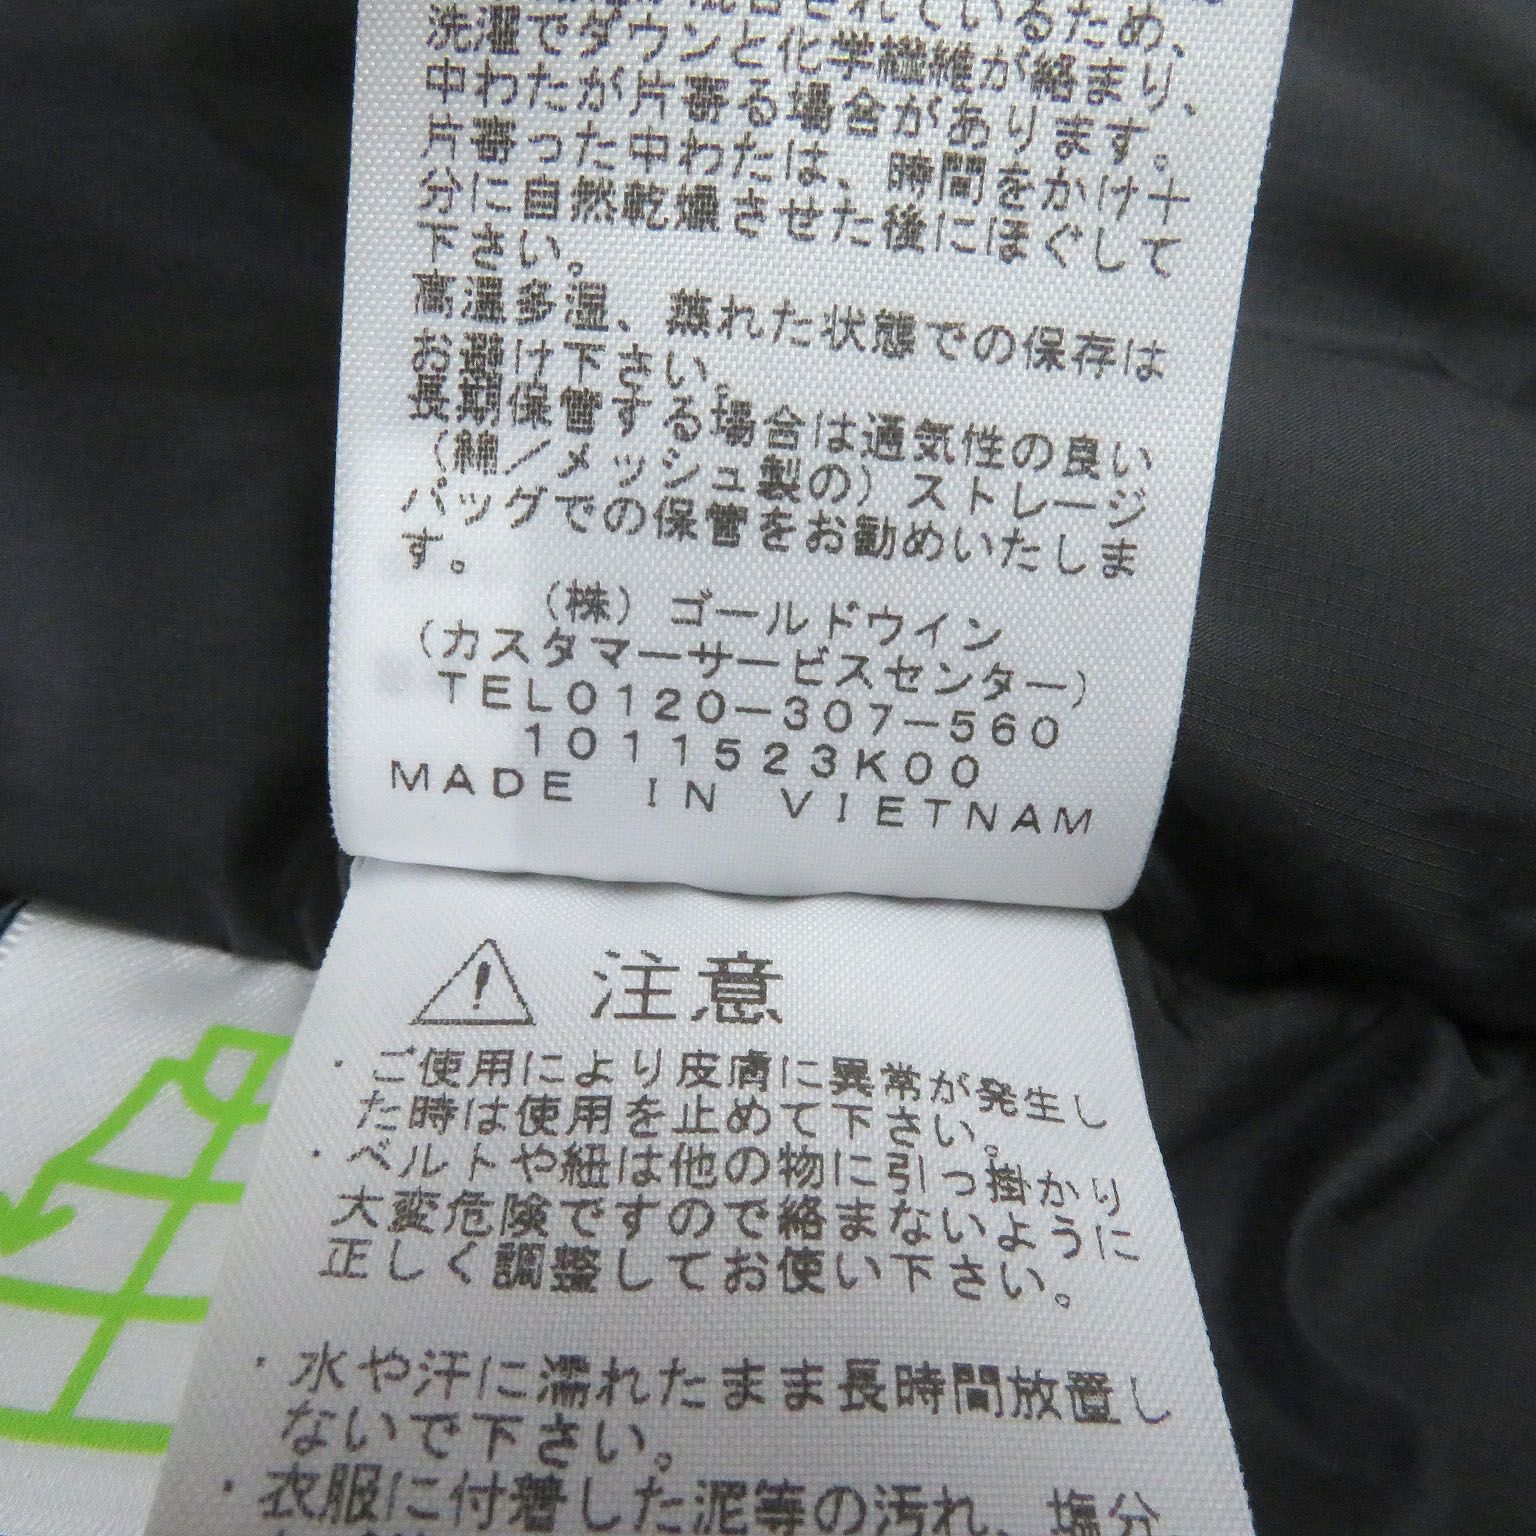 混合されているため、
洗濯でダウンと化学繊維が絡まり、
中わたが片寄る場合があります。
片寄った中わたは、時間をかけ十
分に自然乾燥させた後にほぐして
下さい。
高温多湿、蒸れた状態での保存は
お避け下さい。
長期保管する場合は通気性の良い
（綿／メッシュ製の）ストレージ
バッグでの保管をお勧めいたしま
す。
（株）ゴールドウイン
（カスタマーサービスセンター）
TEL0120－307－560
1011523K00
MADE IN VIETNAM
注意
・ご使用により皮膚に異常が発生し
た時は使用を止めて下さい。
・ベルトや紐は他の物に引っ掛かり
大変危険ですので絡まないように
正しく調整してお使い下さい。
・水や汗に濡れたまま長時間放置し
ないで下さい。
・衣服に付着した泥等の汚れ、塩分